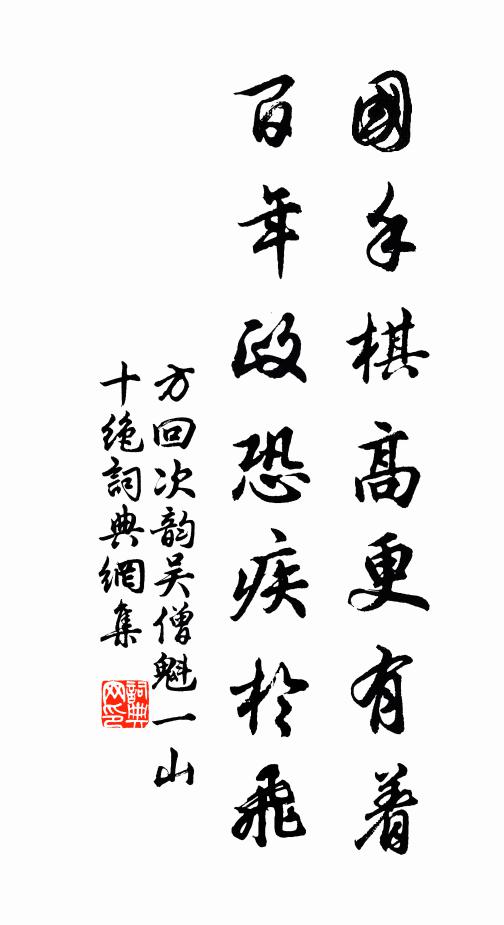 國手棋高更有着
百年政恐疾於飛
方回次韵吴僧魁一山
十絶詞典網集
詞典网印